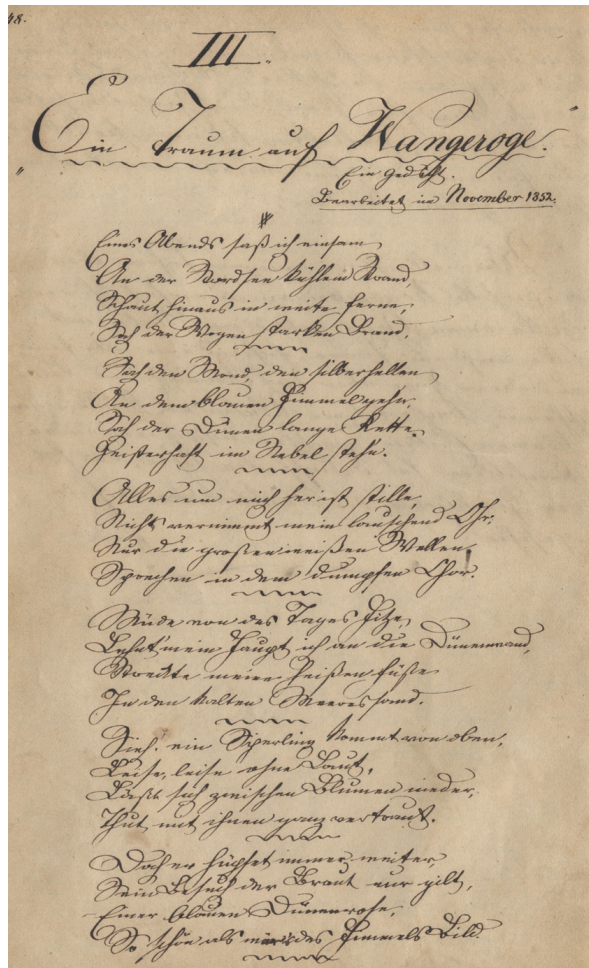 48.
III.
Ein Traum auf Wangeroge.
Ein Gedicht.
Bearbeitet im November 1852.
Eines Abends saß ich einsam
An der Nordsee kühlem Strand,
Schaut hinaus in weite Ferne,
Sah der Wogen starken Brand.
Sah den Mond, den silberhellen
An dem blauen Himmel gehn,
Sah der Dünen lange Kette
Geisterhaft im Nebel stehn.
Alles um mich her ist stille,
Nichts vernimmt mein lauschend Ohr.
Nur die großen weißen Wellen,
Sprechen in dem dumpfen Chor.
Müde von des Tages Hitze,
Lehnt' mein Haupt ich an die Dünenwand,
Streckte meine heißen Füße
In den kalten Meeressand.
Sieh, ein Sperling kommt von oben,
Leise, leise ohne Laut,
Läßt sich zwischen Blumen nieder,
Thut mit ihnen ganz vertraut.
Doch er hüpfet immer weiter
Sein Besuch der Braut nur gilt,
Einer blauen Dünenrose,
So schön als des Himmels Bild.